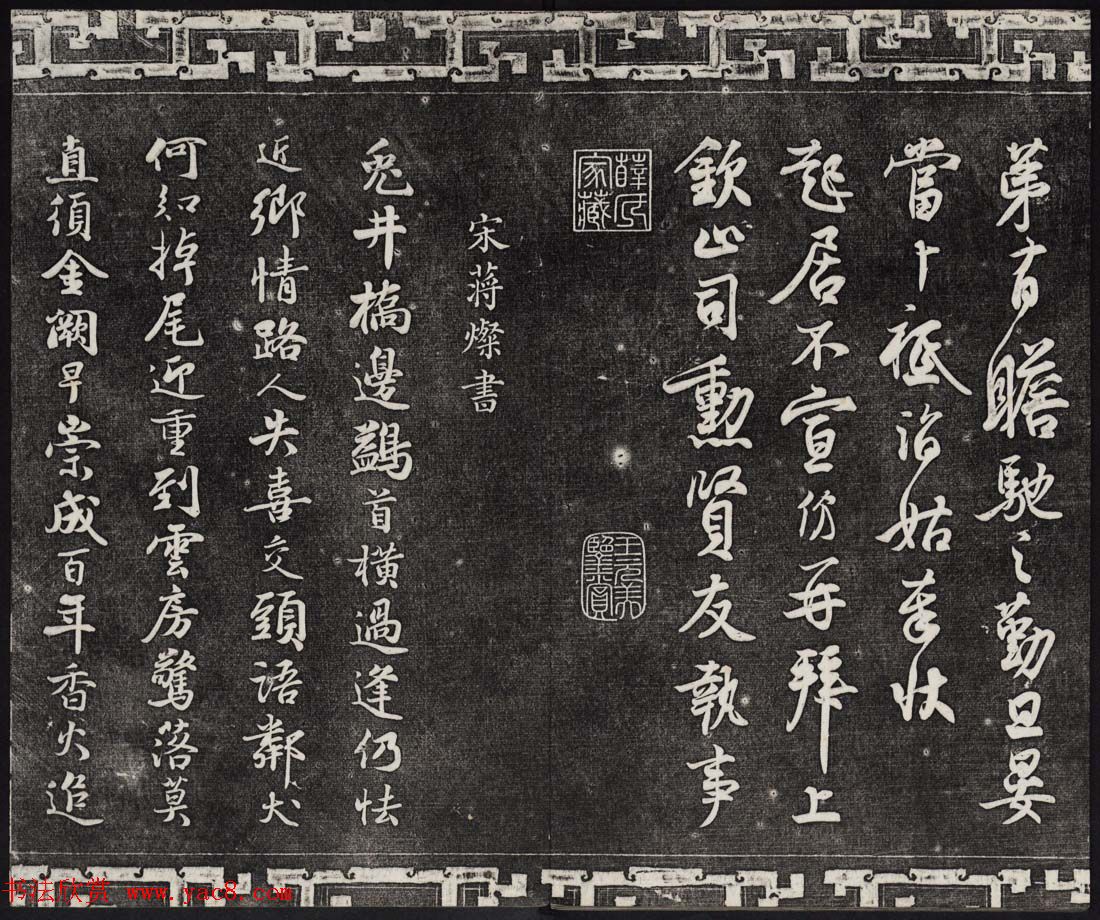 弟有瞻馳之勤旦晏
當十祗治姑奉狀
起居不宣仿再拜上
欽止司勳賢友執事
薛氏家藏
王元美鑒賞
宋蔣燦書
兎井橋邊鷁首橫過逢仍怯
近鄉情路人失喜交頭語鄰犬
何知掉尾迎重到雲房驚落莫
直須金闕早崇成百年香火追
书法欣赏 www.yac8.com